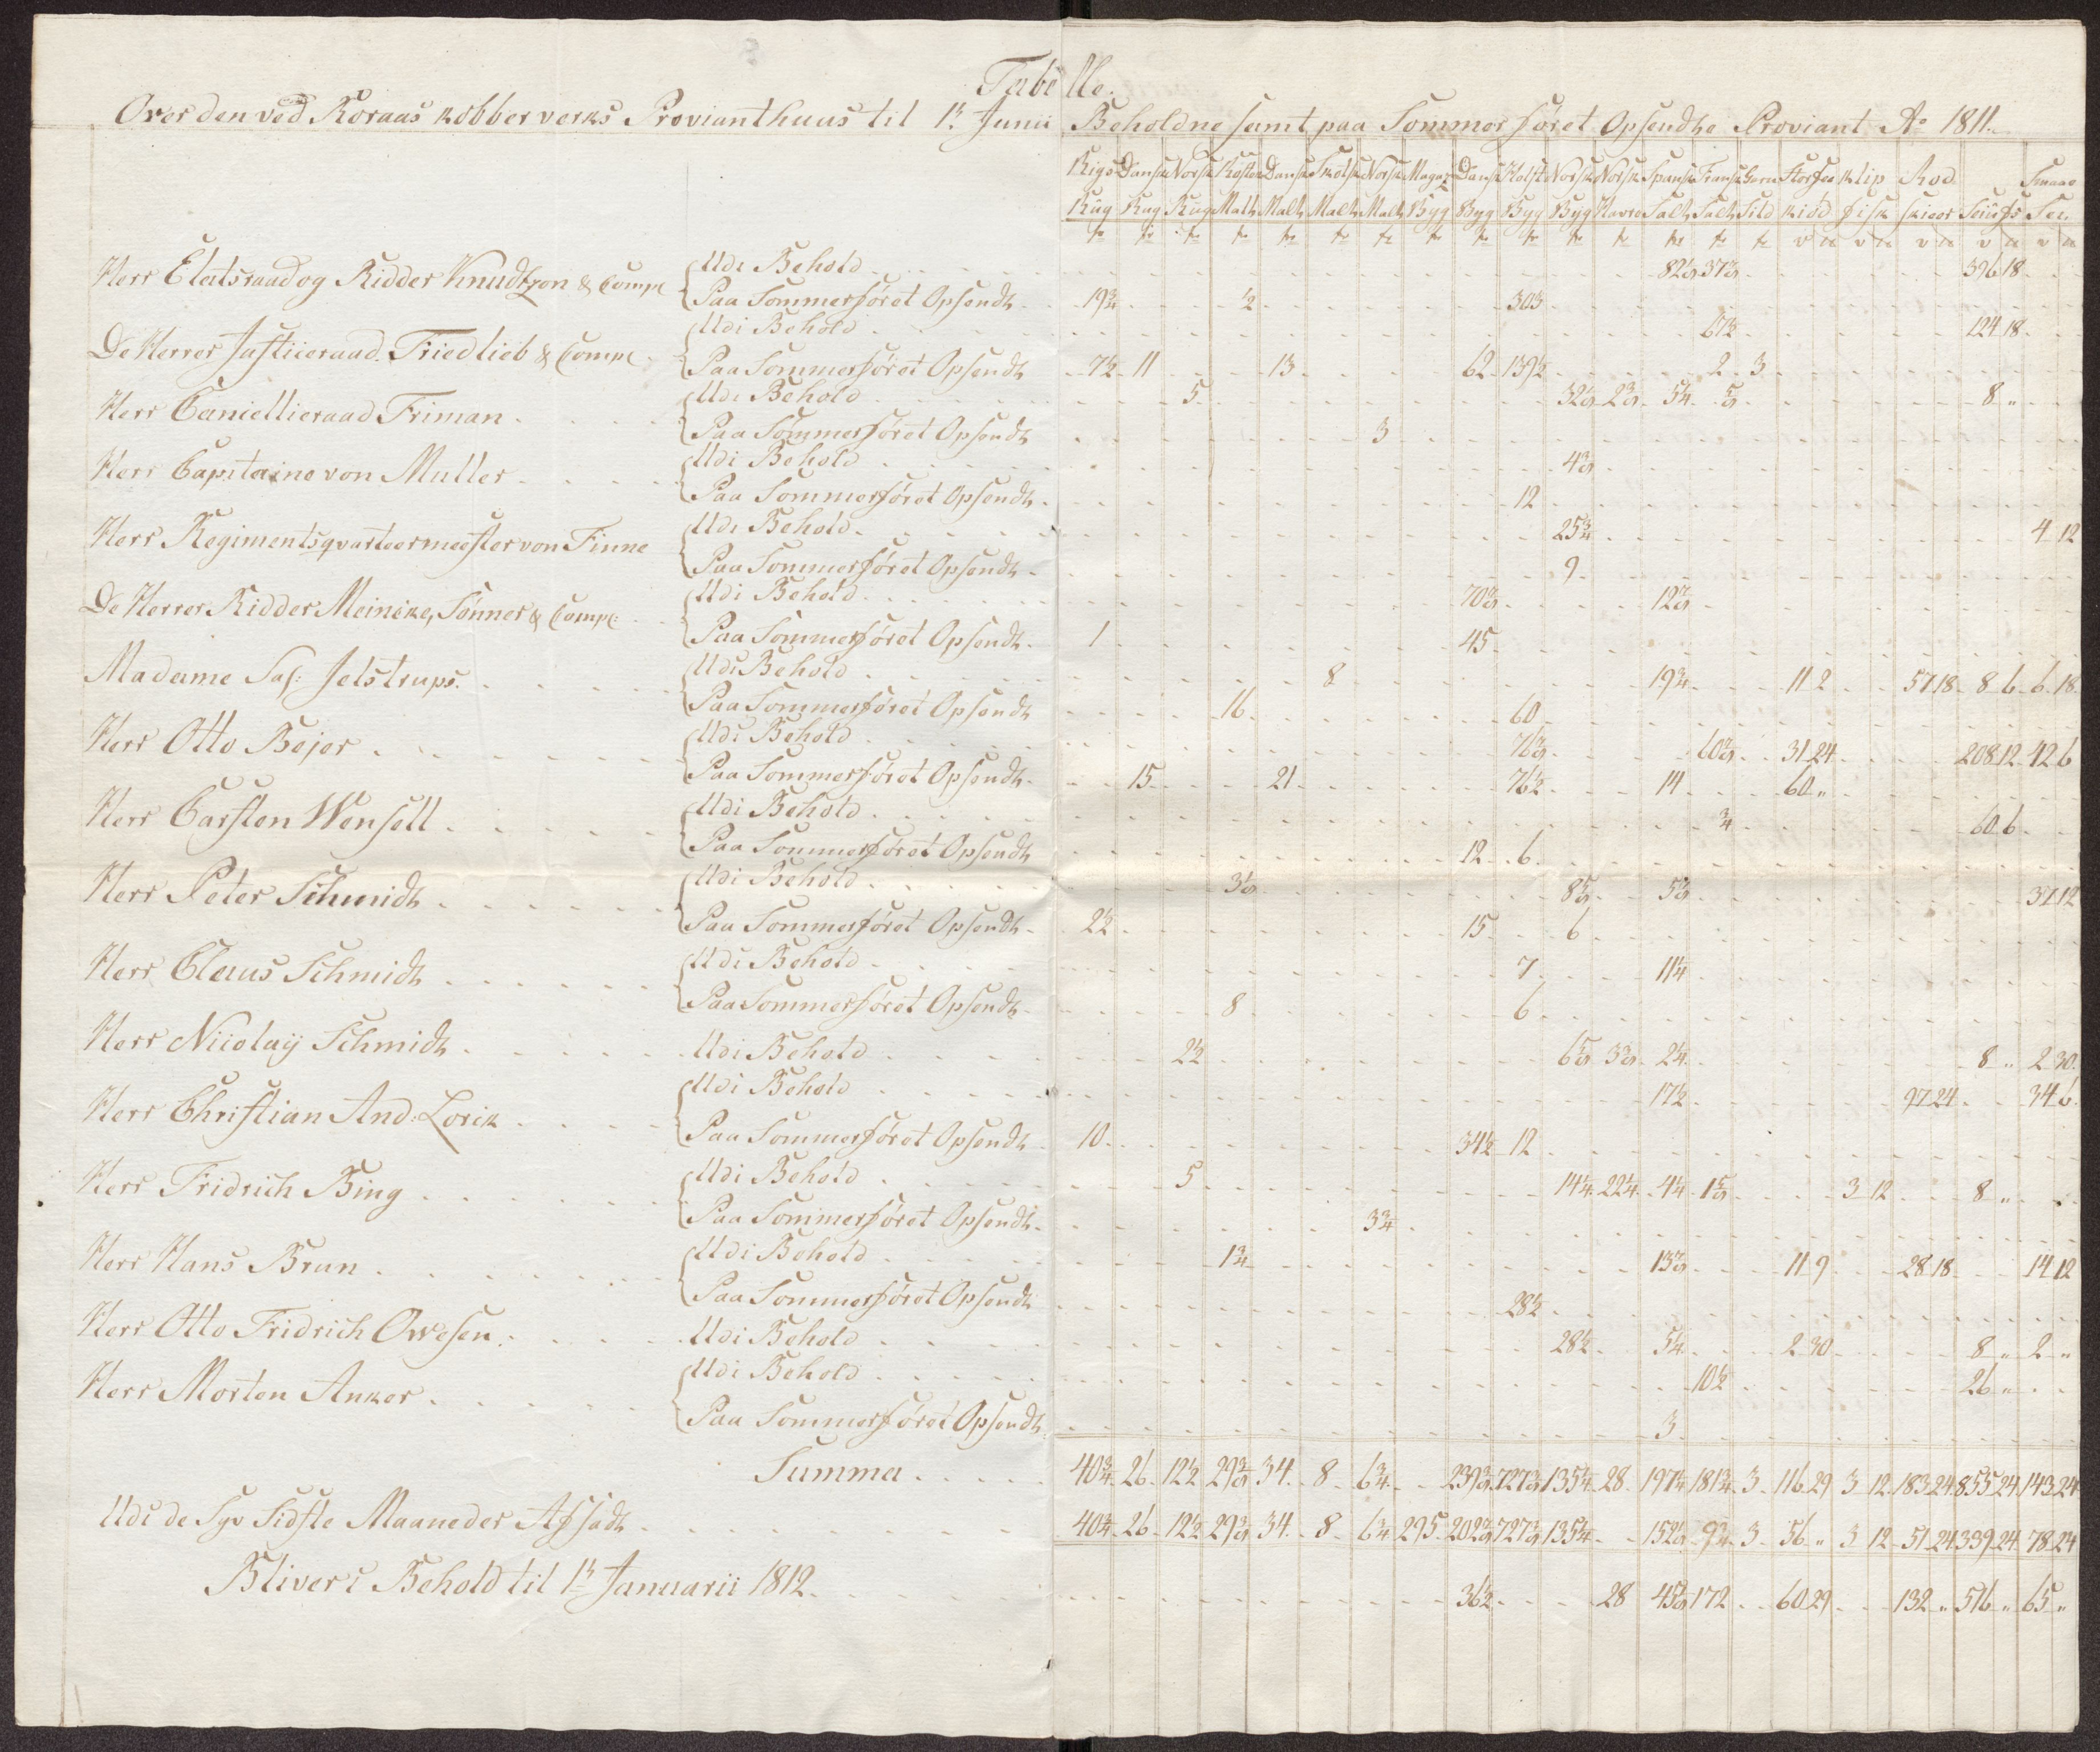 Tabelle.
Over den ved Røraas Kobberverks Provianthuus til 1te Junii Beholdne samt paa Sommerføret Opsendte Proviant Ao 1811.
Rigs Dansk Norsk Dansk Skotsk Norsk Magaz Dansk Holst Norsk Norsk Spansk Fransk Klip Rod Smaae
Rug Rug Rug Malt Malt Malt Malt Byg Byg Byg Byg Havre Salt Salt Sild kiød fisk skiær Seÿ Sei
Herr Etatsraad og Ridder Knudtzon & Comp {Udi Behold 82⅛ 37⅜ 396 18
{Paa Sommerføret Opsendt 19¾ ½ 303
De Herrer Justiceraad Friedlieb & Comp {Udi Behold 67½ 124 18
{Paa Sommerføret Opsendt 7½ 11 13 62 139½ 2 3
Herr Cancellieraad Friman {Udi Behold 5 32⅛ 2⅜ 5¼ ⅝ 8 "
{Paa Sommerføret Opsendt 3
Herr Capitaine von Muller {Udi Behold 4⅜
{Paa Sommerføret Opsendt 12
Herr Regimentsqvarteermeester von Finne {Udi Behold 25¾ 4 12
{Paa Sommerføret Opsendt 9
De Herrer Ridder Meincke, Sønner & Comp: {Udi Behold 70⅞ 12⅞
{Paa Sommerføret Opsendt 1 45
Madame Sal: Jelstrups {Udi Behold 8 19¾ 11 2 57 18 8 6 6 18
{Paa Sommerføret Opsendt 16 60
Herr Otto Bejer {Udi Behold 76⅜ 60⅞ 31 24 208 12 42 6
{Paa Sommerføret Opsendt 15 21 76½ 14 60 "
Herr Carsten Wensell {Udi Behold ¾ 60 6
{Paa Sommerføret Opsendt 12 6
Herr Peter Schmidt {Udi Behold 3⅛ 8⅝ 5⅜ 37 12
{Paa Sommerføret Opsendt 2½ 15 6
Herr Claus Schmidt {Udi Behold 7 11¼
{Paa Sommerføret Opsendt 8 6
Herr Nicolaÿ Schmidt Udi Behold 2½ 6⅝ 3⅜ 2¼ 8 " 2 30
Herr Christian And: Lorck {Udi Behold 17½ 97 24 34 6
{Paa Sommerføret Opsendt 10 34½ 12
Herr Fridrich Bing {Udi Behold 5 14¼ 22¼ 4¼ 1⅝ 3 12 8 "
{Paa Sommerføret Opsendt 3¾
Herr Hans Brun {Udi Behold 1¾ 13⅞ 11 9 28 18 14 12
{Paa Sommerføret Opsendt 28½
Herr Otto Fridrich Owesen Udi Behold 28½ 5¼ 2 30 8 " 2 "
Herr Morten Anker {Udi Behold 10½ 26 "
{Paa Sommerføret Opsendt 3
Summa 40¾ 26 12½ 29⅜ 34 8 6¾ 239⅜ 727⅜ 135¼ 28 197¼ 181¾ 3 116 29 3 12 183 24 855 24 143 24
Udi de Syv Sidste Maaneder Afsadt 40¾ 26 12½ 29⅜ 34 8 6¾ 295 202⅞ 727⅜ 135¼ 152⅛ 9¾ 3 56 " 3 12 51 24 339 24 78 24
Bliver i Behold til 1te Januarii 1812 36½ 28 45⅛ 172 60 29 132 " 516 " 65 "